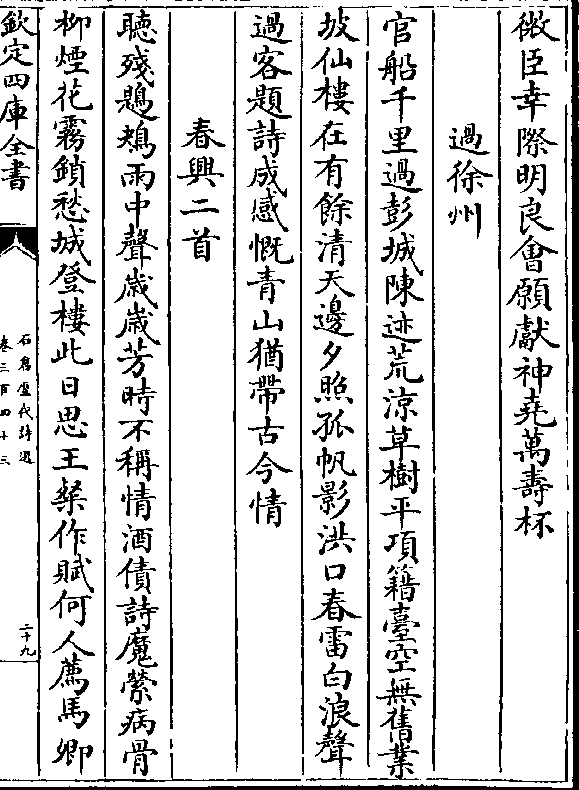 微臣幸際明良會願獻神堯萬壽杯
過徐州
官船千里過彭城陳迹荒涼草樹平項籍臺空無舊業
坡仙樓在有餘清天邊夕照孤帆影洪口春雷白浪聲
過客題詩成感慨青山猶帶古今情
春興二首
聽殘鶗鴂雨中聲歲歲芳時不稱情酒債詩魔縈病骨
柳煙花霧鎖愁城登樓此日思王粲作賦何人薦馬卿
欽定四庫全書
石倉歷代詩選
卷三百四十三
二十九